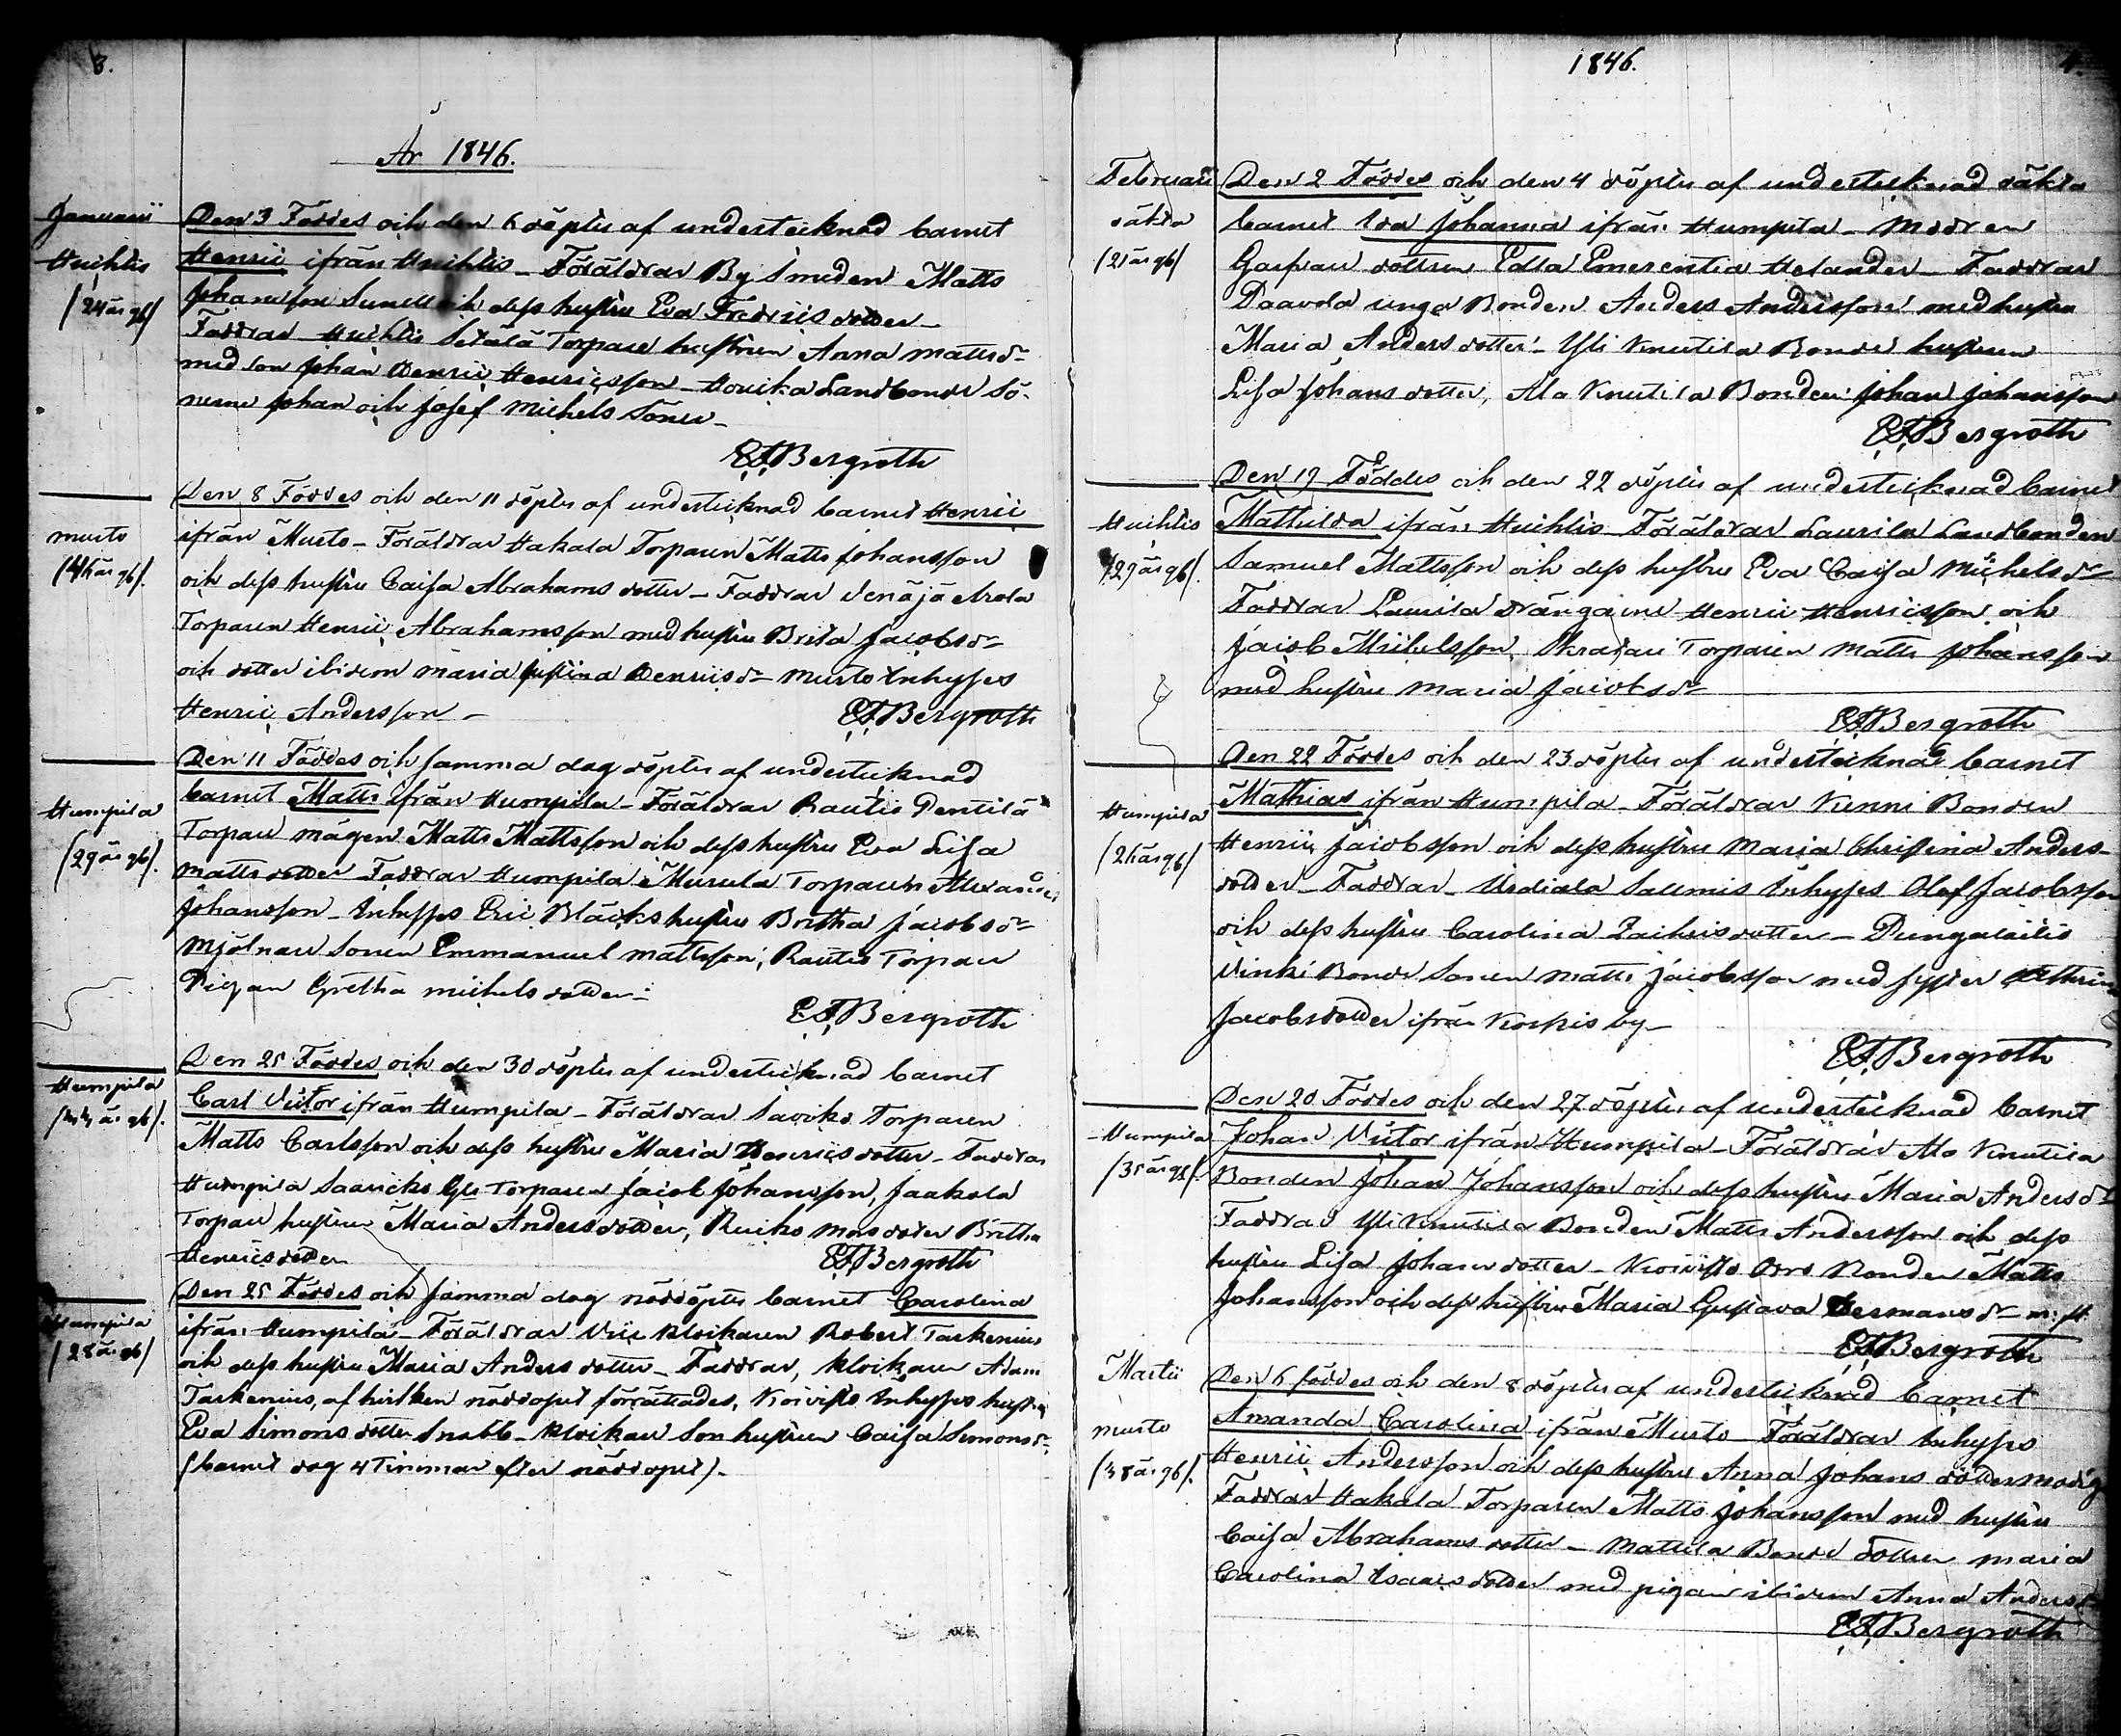 3.
År 1846.
Januarii
Huihtis
/24 år gl/
Den 3 Föddes och den 6 döptes af undertecknad barnet
Henric ifrån Huihtis – Föräldrar By Smeden Matts
Johansson Sunell och dess hustru Eva Fredrics dotter –
Faddrar Huihtis Setälä Torpare hustrun Anna Mattsdr
med son Johan Henric Henricsson – Houika Landbonde Sö-
nerne Johan och Josef Michels Söner –
Bergroth
Murto
Den 8 Föddes och den 11 döptes af undertecknad barnet Henric
ifrån Murto – Föräldrar Hakala Torparen Matts Johansson
och dess hustru Caisa Abrahams dotter – Faddrar Venäjä
Torparen Henric Abrahamsson med hustru Brita Jacobsdr
och dotter ibidem Maria Justina Henricsdr Murto Inhyses
Henric Andersson –
Bergroth
Humpila
/29 år gl/.
Den 11 Föddes och samma dag döptes af undertecknad
barnet Matts ifrån Humpila – Föräldrar Rautio Pentilä
Torpare mågen Matts Mattsson och dess hustru Eva Lisa
Mattsdotter – Faddrar Humpila Murula Torparen Alexander
Johansson – Inhyses Eric Bläcks hustru Britha Jacobsdr
Mjölnare Sonen Emmanuel Mattsson, Rautio Torpare
Pigan Gretha Michelsdotter –
Bergroth
Humpila
Den 25 Föddes och den 30 döptes af undertecknad barnet
Carl Victor ifrån Humpila – Föräldrar Saviko Torparen
Matts Carlsson och dess hustru Maria Henricsdotter – Faddrar
Humpila Torparen Jacob Johansson, Jaakola
Torpare hustrun Maria Andersdotter, dotter Britha
Henricsdotter
Bergroth
Humpila
/28 år gl/
Den 25 Föddes och samma dag nöddöptes barnet Carolina
ifrån Humpila – Föräldrar Vice klockaren Robert Tarkenius
och dess hustru Maria Anders dotter – Faddrar, klockaren Adam
Tarkenius, af hvilken nöddopet förrättades, Koivisto Inhyses hustru
Eva Simons dotter Snabb – klockare Son hustrun Caisa Simonsdr
(barnet dog 4 Timmar efter nöddopet).
1846.
4.
Februarii
oäkta
/21 år gl/
Den 2 Föddes och den 4 döptes af undertecknad oäkta
barnet Ida Johanna ifrån Humpila – Modren
dottren Edla Emerentia Helander – Faddrar
Daavola unga Bonden Anders Andersson med hustru
Maria Anders dotter – Yli Knutila Bonde hustrun
Lisa Johans dotter, Ala Knutila Bonden Johan Johansson
Bergroth
Huihtis
/29 år gl/.
Den 19 Föddes och den 22 döptes af undertecknad barnet
Mathilda ifrån Huihtis Föräldrar Laurila Landbonden
Samuel Mattsson och dess hustru Eva Caisa Michelsdr
Faddrar Laurila drängarne Henric Henricsson och
Jacob Michelsson, Torparen Matts Johansson
med hustru Maria Jacobsdr
Bergroth
Humpila
/26 år gl/
Den 22 Föddes och den 23 döptes af undertecknad barnet
Mathias ifrån Humpila – Föräldrar Kenni Bonden
Henric Jacobsson och dess hustru Maria Christina Anders-
dotter – Faddrar – Urdiala Inhyses Olof Jacobsson
och dess hustru Carolina Zachrisdotter –
Vinki Bonde Sonen Matts Jacobsson med syster
Jacobsdotter ifrån Koskis by –
Bergroth
Humpila
/35 år gl/.
Den 20 Föddes och den 27 döptes af undertecknad barnet
Johan Victor ifrån Humpila – Föräldrar Ala Knutila
Bonden Johan Johansson och dess hustru Maria Andersdr
Faddrar Yli Knutila Bonden Matts Andersson och dess
hustru Lisa Johansdotter – Koivisto Orro Bonden Matts
Johansson och dess hustru Maria Gustava Hermansdr m: fl.
Bergroth
Martii
Murto
/38 år gl/.
Den 6 föddes och den 8 döptes af undertecknad barnet
Amanda Carolina ifrån Murto – Föräldrar Inhyses
Henric Andersson och dess hustru Anna Johans dotter Modig
Faddrar Hakala Torparen Matts Johansson med hustru
Caisa Abrahams dotter – Mattila Bonde dottren Maria
Carolina Isaacsdotter med pigan ibidem Anna Andersdr
Bergroth